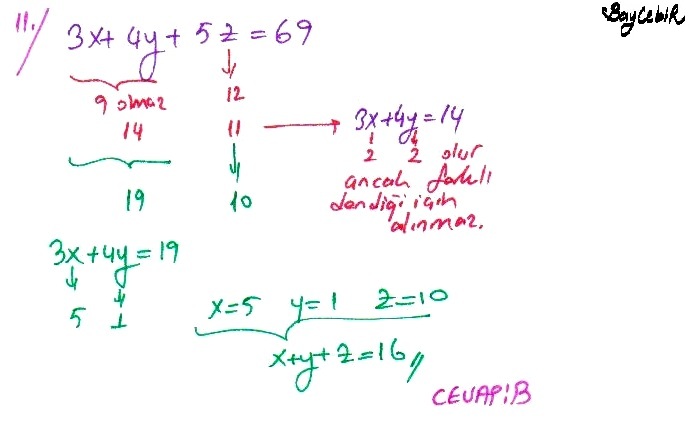 BayCebiR
11.
3x+4y+5z=69
9 olmaz 12
14 11
3x+4y=14
2 2 olur
ancak farklı
dendiği için
alınmaz.
19 10
3x+4y=19
5 1
x=5 y=1 z=10
x+y+z=16
CEVAP:B